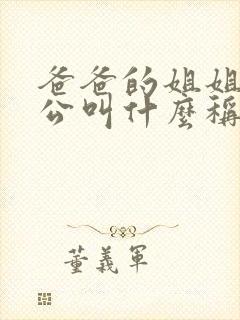 爸爸的姐姐
公叫什麼稱
董義軍